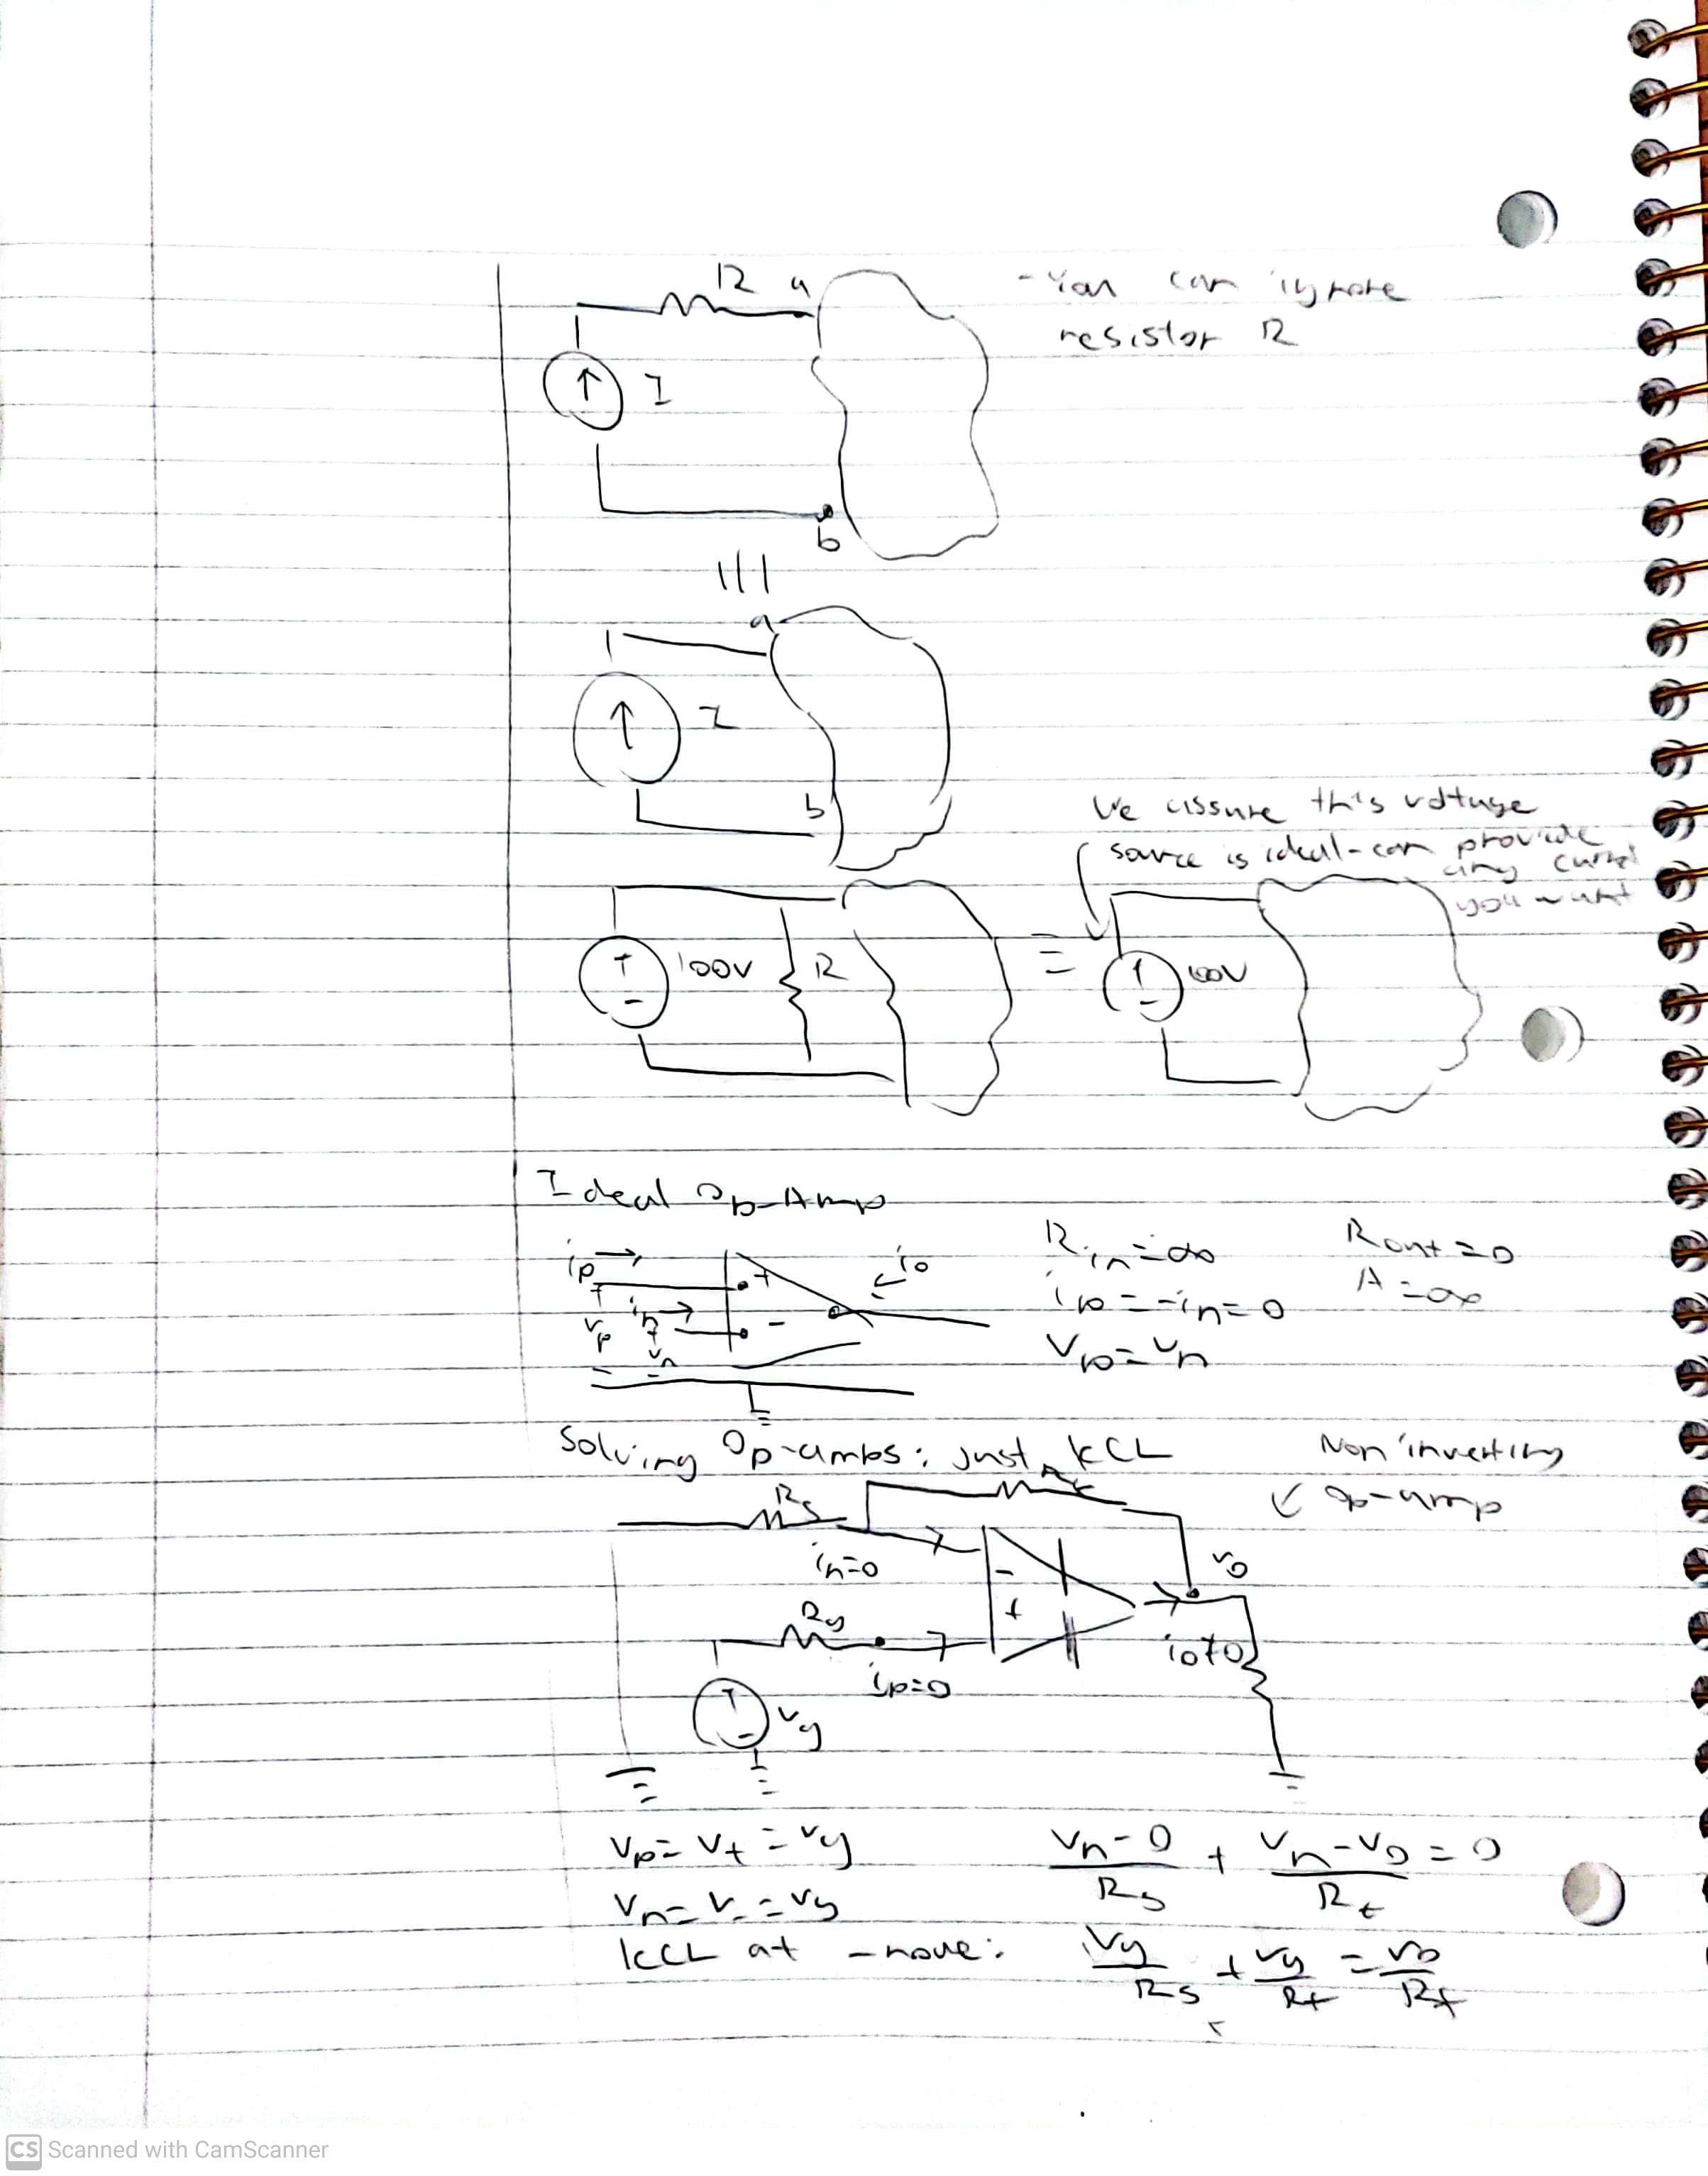 R a
- You can ignore
resistor R
I
b
a
I
b
We assume this voltage
source is ideal - can provide
any current
you want
100V R
≡
100V
Ideal Op-Amp
ip → + ← io
in → -
vp
vn
Rin = ∞ Rout = 0
ip = -in = 0 A = ∞
Vp = Vn
Solving Op-amps: just KCL
Non inverting
↙ op-amp
Rs Rf
in=0
-
+
vo
Rg
ip=0
io≠0
Vg
Vp = V+ = Vg
Vn = V- = Vg
KCL at - node:
Vn - 0 / Rs + Vn - Vo / Rf = 0
Vg / Rs + Vg / Rf = Vo / Rf
CS Scanned with CamScanner